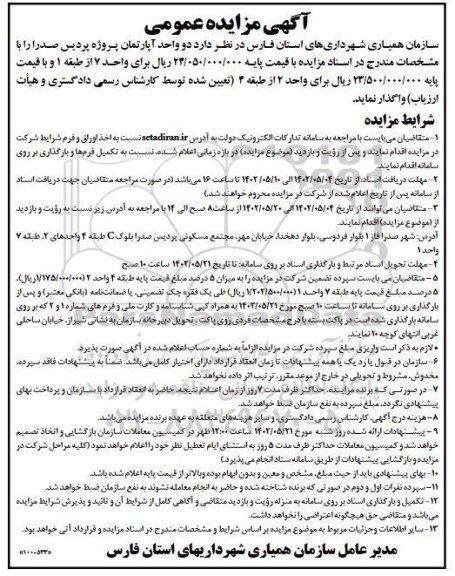 آگهی مزایده عمومی
سازمان همیاری شهرداری‌های استان فارس در نظر دارد دو واحد آپارتمان پروژه پردیس صدرا را با
مشخصات مندرج در اسناد مزایده با قیمت پایه ۲۴/۰۵۰/۰۰۰/۰۰۰ ریال برای واحد ۷ از طبقه ۱ و با قیمت
پایه ۲۳/۵۰۰/۰۰۰/۰۰۰ ریال برای واحد ۲ از طبقه ۴ (تعیین شده توسط کارشناس رسمی دادگستری و هیأت
ارزیاب) واگذار نماید.
شرایط مزایده
۱- متقاضیان می‌بایست با مراجعه به سامانه تدارکات الکترونیک دولت به آدرس setadiran.ir نسبت به اخذ اوراق و فرم شرایط شرکت
در مزایده اقدام نمایند و پس از رؤیت و بازدید (موضوع مزایده) در بازه زمانی اعلام شده، نسبت به تکمیل فرم‌ها و بارگذاری بر روی
سامانه اقدام نمایند.
۲- مهلت دریافت اسناد: از تاریخ ۱۴۰۲/۰۵/۰۴ الی ۱۴۰۲/۰۵/۱۰ تا ساعت ۱۶ می‌باشد (در صورت مراجعه متقاضیان جهت دریافت اسناد
از سامانه پس از تاریخ اعلام شده از شرکت در مزایده محروم خواهند شد.)
۳- متقاضیان می‌توانند از تاریخ ۱۴۰۲/۰۵/۰۴ الی ۱۴۰۲/۰۵/۲۰ از ساعت ۸ صبح الی ۱۴ با مراجعه به آدرس زیر نسبت به رؤیت و بازدید
از (موضوع مزایده) اقدام نمایند.
آدرس: شهر صدرا فاز ۱ بلوار فردوسی، بلوار دهخدا، خیابان مهر، مجتمع مسکونی پردیس صدرا بلوک C طبقه ۴ واحدهای ۲، طبقه ۷
واحد ۱
۴- مهلت تحویل اسناد مرتبط و بارگذاری اسناد بر روی سامانه: تا تاریخ ۱۴۰۲/۰۵/۲۱ تا ساعت ۱۰ صبح
۵- متقاضیان می بایست سپرده تضمین شرکت در مزایده را به میزان ۵ درصد مبلغ قیمت پایه طبقه ۴ واحد ۲ (۱/۱۷۵/۰۰۰/۰۰۰ریال)،
۵ درصد مبلغ قیمت پایه طبقه ۷ واحد ۱ (۱/۲۰۲/۵۰۰/۰۰۰ ریال) طی یک فقره چک تضمینی، یا ضمانت‌نامه (بانکی معتبر) و پس از
بارگذاری بر روی سامانه تا ساعت ۱۰ صبح مورخ ۱۴۰۲/۰۵/۲۱ به همراه کپی شناسنامه و کارت ملی و فرم های شماره ۱ و ۲ که بر روی
سامانه بارگذاری شده است در پاکت بسته با درج مشخصات فردی روی پاکت، تحویل دبیرخانه سازمان به نشانی شیراز، خیابان ساحلی
غربی انتهای کوچه ۱۰ نمایند.
*لازم به ذکر است واریزی مبلغ سپرده شرکت در مزایده الزاماً به شماره حساب اعلام شده در آگهی صورت پذیرد.
۶- سازمان در قبول یا رد یک یا همه پیشنهادات تا زمان انعقاد قرارداد دارای اختیار کامل می‌باشد. ضمناً به پیشنهادات فاقد سپرده،
مخدوش، مشروط و تحویلی در خارج از موعد مقرر، ترتیب اثر داده نخواهد شد.
۷- در صورتی که برنده مزایده، حداکثر ظرف مدت ۷ روز از زمان اعلام نتیجه حاضر به انعقاد قرارداد با سازمان و پرداخت بهای
پیشنهادی نگردد، مبلغ سپرده به نفع سازمان ضبط خواهد شد.
۸- هزینه درج آگهی، کارشناس رسمی دادگستری، و سایر هزینه‌های متعلقه به عهده برنده مزایده می‌باشد.
۹- پیشنهادات ارائه شده روز شنبه مورخ ۱۴۰۲/۰۵/۲۱ ساعت ۱۲:۰۰ ظهر در کمیسیون معاملات سازمان بازگشایی و اتخاذ تصمیم
خواهد شد و کمیسیون معاملات حداکثر ظرف مدت ۵ روز به استثنای ایام تعطیل نظر خود را اعلام خواهد نمود (کلیه مراحل شرکت در
مزایده و بازگشایی پیشنهادات از طریق سامانه ستاد انجام می‌پذیرد.)
۱۰- بهای پیشنهادی باید از حیث مبلغ، مشخص و معین و بدون ابهام بوده و بالاتر از قیمت پایه اعلام شده باشد.
۱۱- سپرده نفرات اول و دوم در صورتی که برنده شناخته شده و حاضر به انجام معامله نشوند به نفع سازمان ضبط خواهد شد.
۱۲- تکمیل و بارگذاری اسناد بر روی سامانه به منزله رؤیت و بازدید متقاضی و آگاهی کامل از شرایط آن و تائید و پذیرش شرایط مزایده
می‌باشد و متقاضی حق هیچگونه اعتراضی را نخواهد داشت.
۱۳- سایر اطلاعات و جزئیات مربوط به موضوع مزایده بر اساس شرایط و مشخصات مندرج در اسناد مزایده و قرارداد آتی خواهد بود.
مدیر عامل سازمان همیاری شهرداریهای استان فارس
«۱۰۰۰۵۳۳»